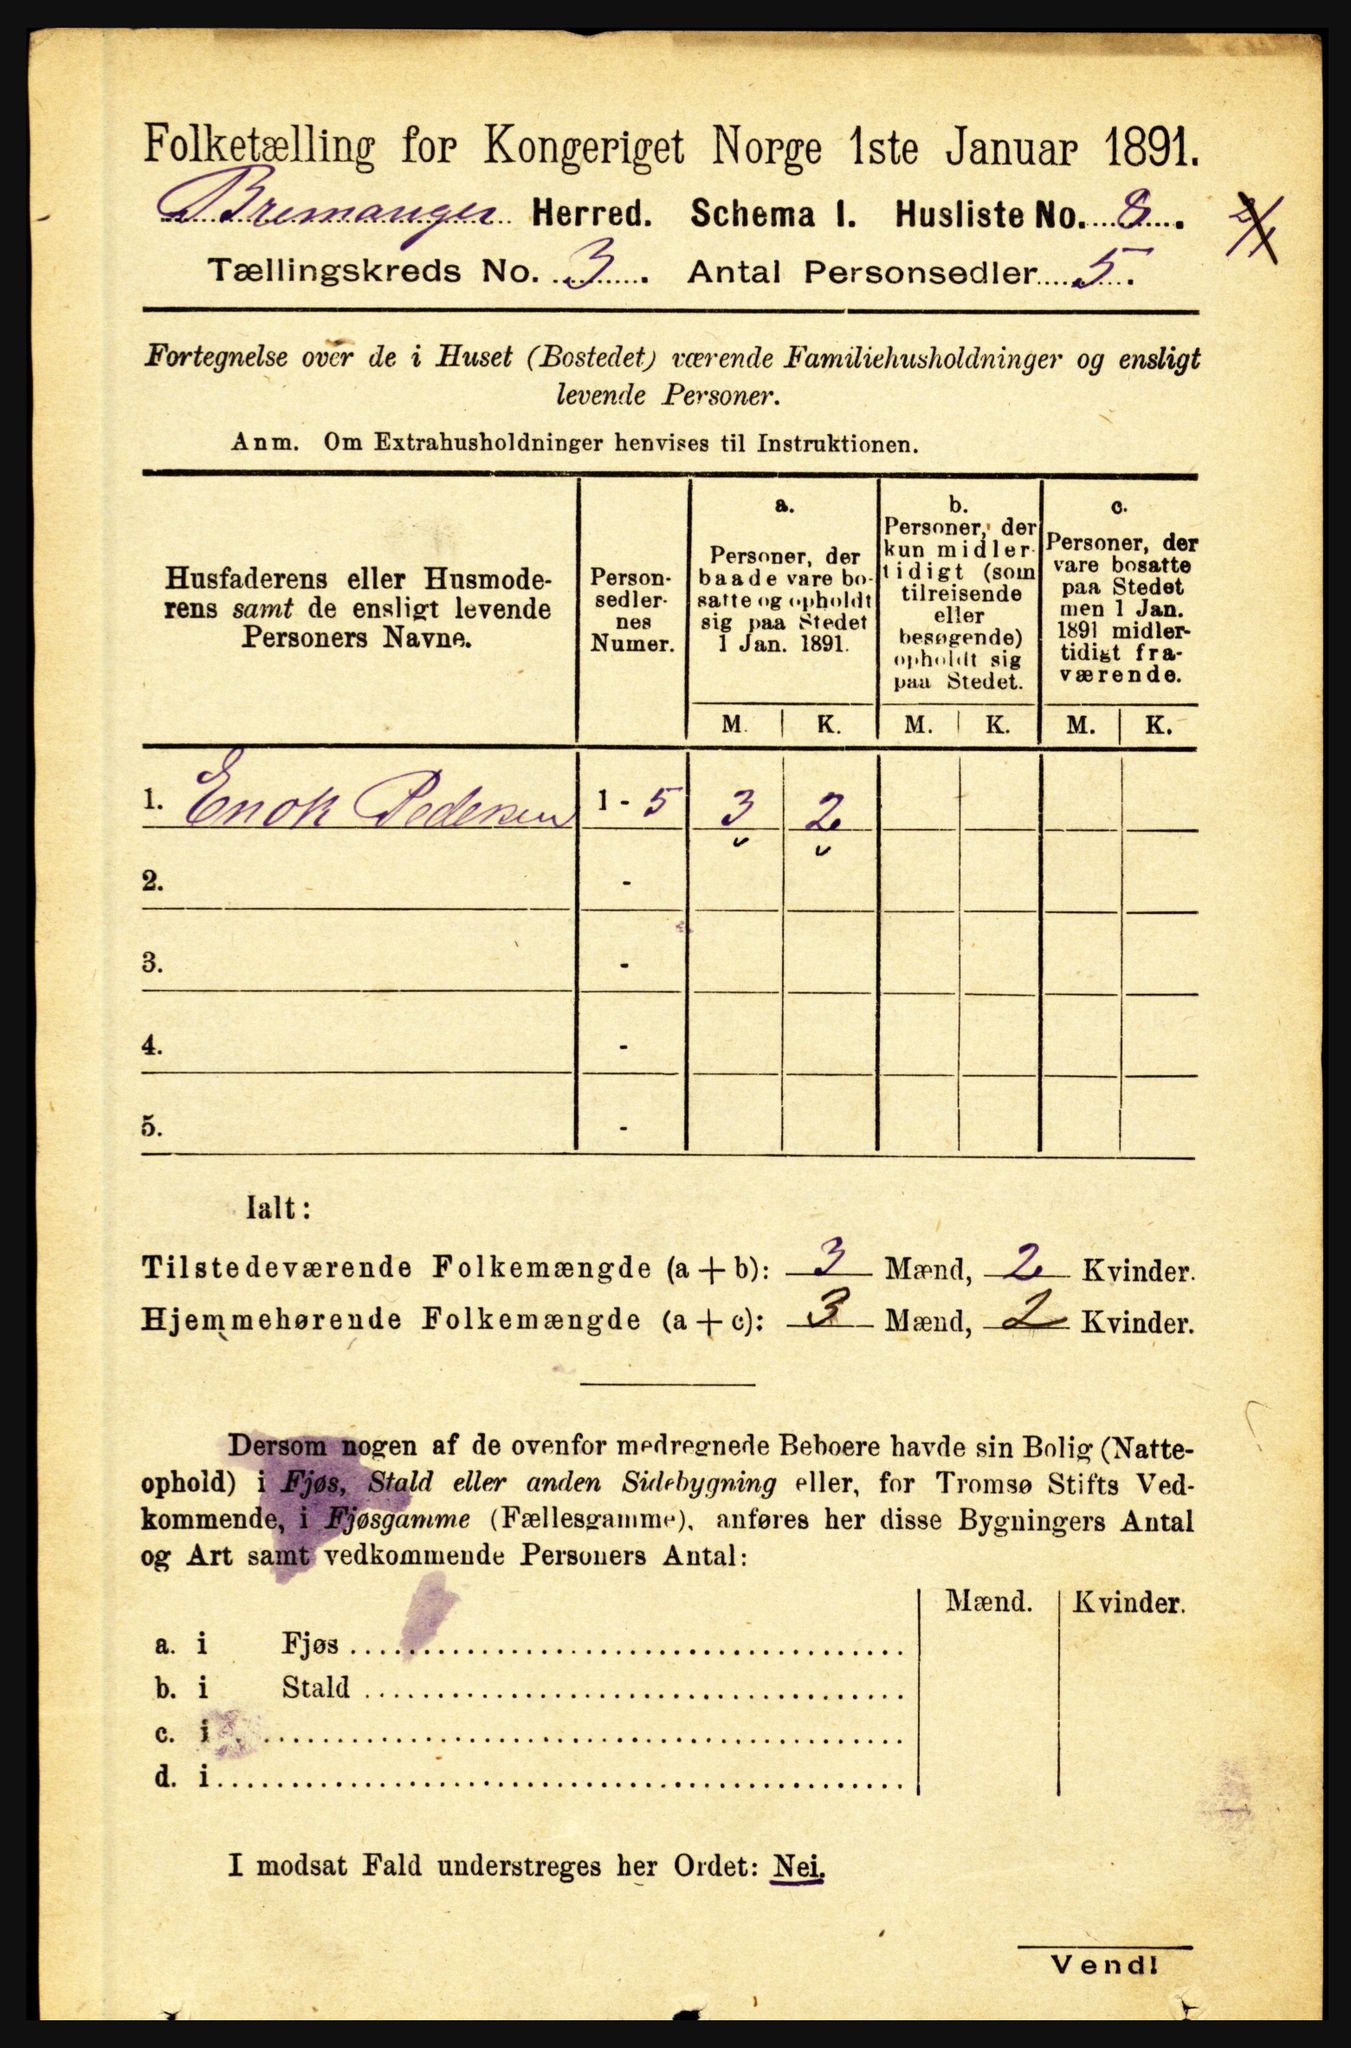 Folketælling for Kongeriget Norge 1ste Januar 1891.
Bremanger Herred. Schema I. Husliste No. 8.
Tællingskreds No. 3. Antal Personsedler 5.
Fortegnelse over de i Huset (Bostedet) værende Familiehusholdninger og ensligt
levende Personer.
Anm. Om Extrahusholdninger henvises til Instruktionen.
Husfaderens eller Husmode-
rens samt de ensligt levende
Personers Navne.
Person-
sedler-
nes
Numer.
a.
Personer, der
baade vare bo-
satte og opholdt
sig paa Stedet
1 Jan. 1891.
b.
Personer, der
kun midler-
tidigt (som
tilreisende
eller
besøgende)
opholdt sig
paa Stedet.
c.
Personer, der
vare bosatte
paa Stedet
men 1 Jan.
1891 midler-
tidigt fra-
værende.
M. K. M. K. M. K.
1. Enok Pedersen 1 - 5 3 2
2. -
3. -
4. -
5. -
Ialt:
Tilstedeværende Folkemængde (a + b): 3 Mænd, 2 Kvinder.
Hjemmehørende Folkemængde (a + c): 3 Mænd, 2 Kvinder.
Dersom nogen af de ovenfor medregnede Beboere havde sin Bolig (Natte-
ophold) i Fjøs, Stald eller anden Sidebygning eller, for Tromsø Stifts Ved-
kommende, i Fjøsgamme (Fællesgamme), anføres her disse Bygningers Antal
og Art samt vedkommende Personers Antal:
Mænd. Kvinder.
a. i Fjøs
b. i Stald
c. i
d. i
I modsat Fald understreges her Ordet: Nei.
Vend!